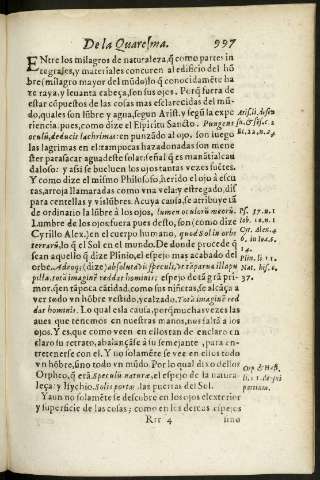 De la Quaresma. 997
ENtre los milagros de naturaleza, q̃ como partes in
tegrales, y materiales concuren al edificio del hõ
bre (milagro mayor del mũdo) lo q̃ conocidamẽte ha
ze raya, y leuanta cabeça, son sus ojos. Porq̃ fuera de
estar cõpuestos de las cosas mas esclarecidas del mũ-
do, quales son lũbre y agua, segun Arist. y segũ la expe
riencia. pues, como dize el Espiritu Sancto. Pungens
oculũ, deducit lachrimas: en punzãdo al ojo, son luego
las lagrimas en el: tampocas haz adonadas son mene
ster para sacar agua deste solar: señal q̃ es manãtial cau
daloso: y assi se bueluen los ojos tantas vezes fuẽtes.
Y como dize el mismo Philosofo, herido el ojo a escu
ras, arroja llamaradas como vna vela: y estregado, dis
para centellas y vislũbres. A cuya causa, se atribuye tã
de ordinario la lũbre à los ojos, lumen oculorũ meorũ.
Lumbre de los ojos: fuera pues desto, son (como dize
Cyrillo Alex.) en el cuerpo humano, quod Sol in orbe
terrarũ, lo q̃ el Sol en el mundo. De donde procede q̃
sean aquello q̃ dize Plinio, el espejo mas acabado del
orbe. Adeoq; (dize) absoluta vis speculi, vt tã parua illa pu
pilla, totã imaginẽ reddat hominis. El espejo desta grã pri-
mor, q̃ en tãpoca cãtidad, como sus niñetas, se alcãça a
ver todo vn hõbre vestido, y calzado. Totã imaginẽ red
dat hominis. Lo qual es la causa, porq̃ muchas vezes las
aues que tenemos en nuestras manos, nos saltã a los
ojos. Y es, que como veen en ellos tan de enclaro en
claro su retrato, abalançãse à su semejante, para en-
tretenerse con el. Y no solamẽte se vee en ellos todo
vn hõbre, sino todo vn mũdo. Por lo qual dixo dellos
Orpheo, q̃ erã. Speculũ naturæ, el espejo de la natura
leça: y Isychio. Solis portæ, las puertas del Sol.
Y aun no solamẽte se descubre en los ojos el exterior
y superficie de las cosas; como en los demas espejos
Rrr 4 sino
Arist. li. de sen
su, & sen. c. 2
Ecl. 22. n. 24
Ps. 37. n. 11
Iob. 18. n. 1
Cyr. Alex. 4
b. in Ioã. c.
14.
Plin. li. 11.
Nat. his. c.
37.
partium.